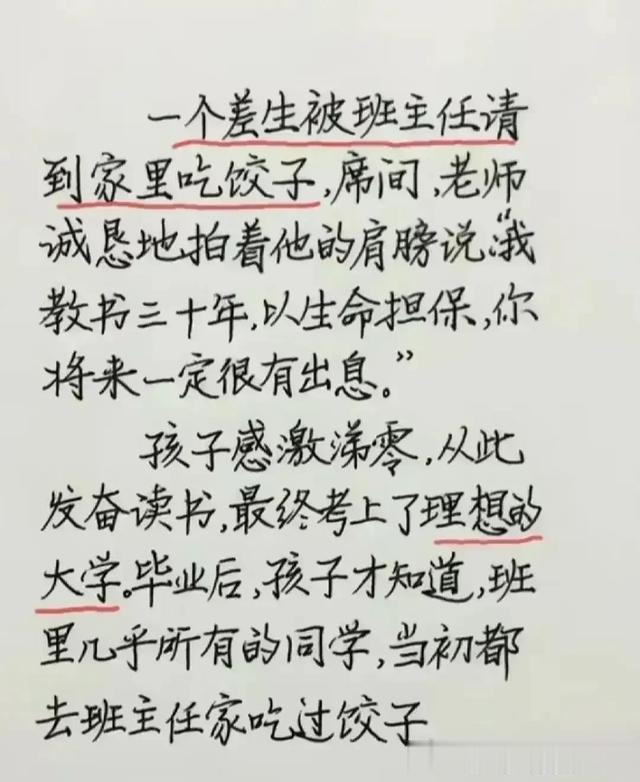 一个差生被班主任请
到家里吃饺子，席间，老师
诚恳地拍着他的肩膀说："我
教书三十年，以生命担保，你
将来一定很有出息。"
孩子感激涕零，从此
发奋读书，最终考上了理想的
大学。毕业后，孩子才知道，班
里几乎所有的同学，当初都
去班主任家吃过饺子